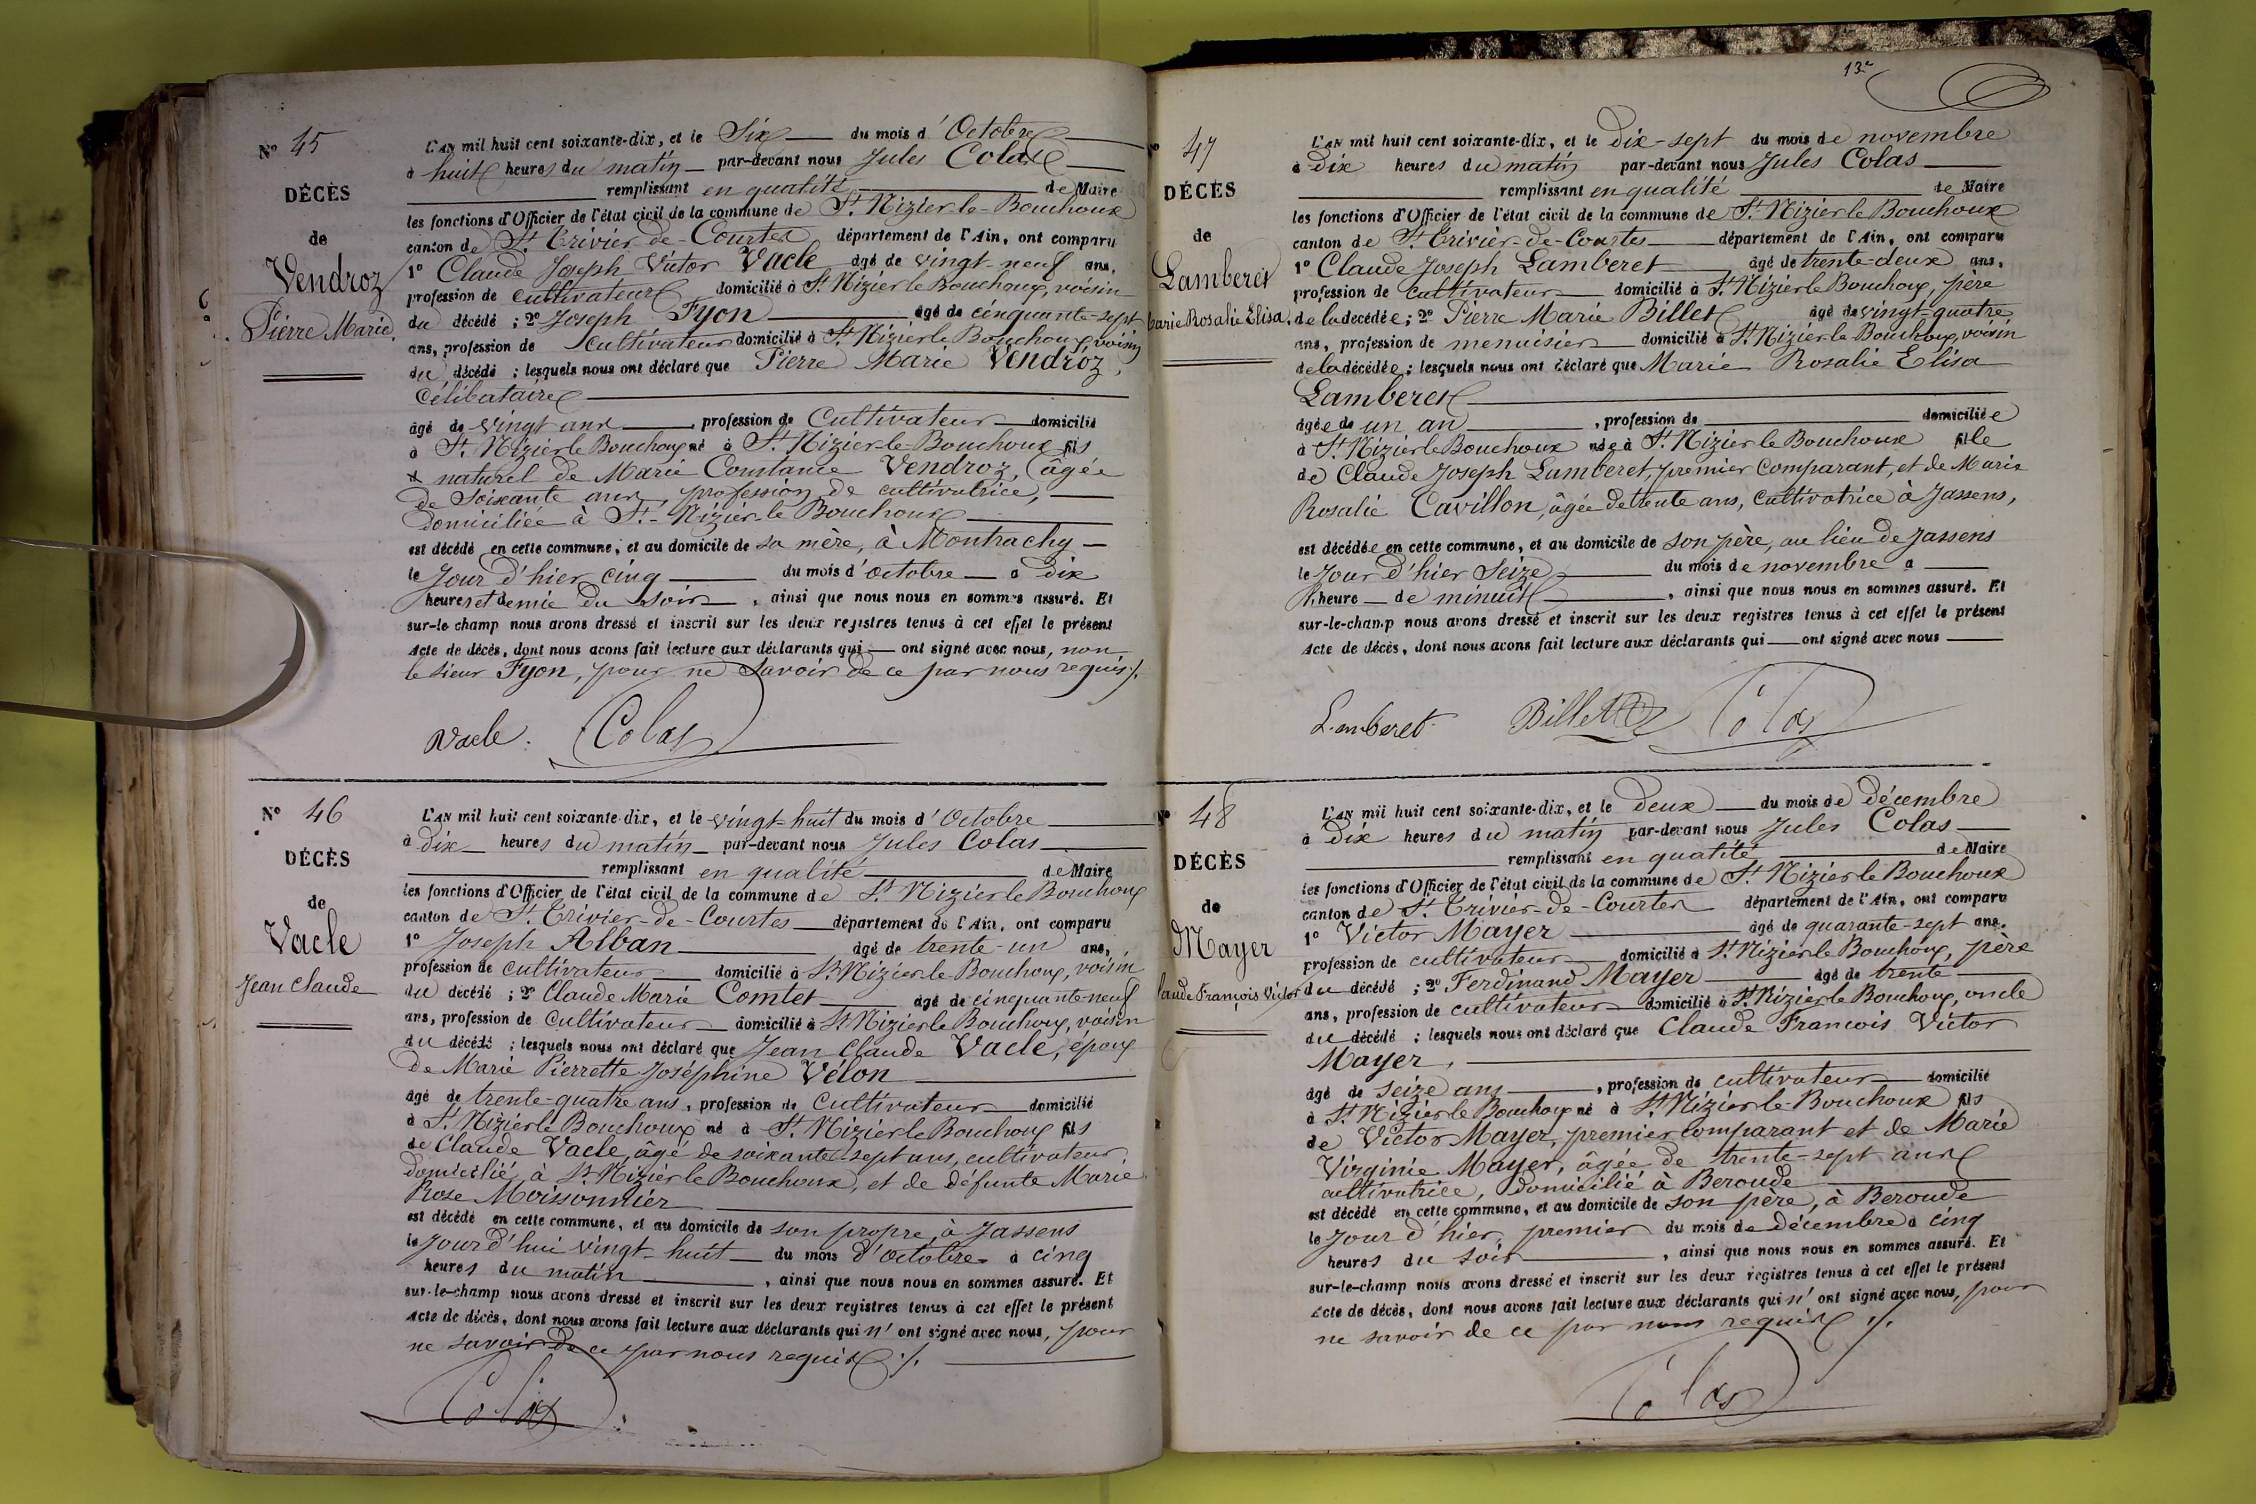 Nº 45
DÉCÈS
de
Vendroz
Pierre Marie.
L'AN mil huit cent soixante-dix, et le Six du mois d'Octobre
à huit heures du matin par-devant nous Jules Colas
remplissant en qualité de Maire
les fonctions d'Officier de l'état civil de la commune de St. Nizier-le-Bouchoux
canton de St. Trivier-de-Courtes département de l'Ain, ont comparu
1º Claude Joseph Victor Vacle âgé de vingt-neuf ans,
profession de cultivateur domicilié à St. Nizier le Bouchoux, voisin
du décédé ; 2º Joseph Fyon âgé de cinquante-sept
ans, profession de cultivateur domicilié à St. Nizier le Bouchoux, voisin
du décédé ; lesquels nous ont déclaré que Pierre Marie Vendroz,
Célibataire
âgé de vingt ans, profession de Cultivateur domicilié
à St. Nizier le Bouchoux né à St. Nizier-le-Bouchoux fils
naturel de Marie Constance Vendroz, âgée
de Soixante ans, profession de cultivatrice,
domiciliée à St.-Nizier-le Bouchoux
est décédé en cette commune, et au domicile de sa mère, à Montrachy
le Jour d'hier cinq du mois d'octobre à dix
heures et demie du soir, ainsi que nous nous en sommes assuré. Et
sur-le-champ nous avons dressé et inscrit sur les deux registres tenus à cet effet le présent
Acte de décès, dont nous avons fait lecture aux déclarants qui ont signé avec nous, non
le sieur Fyon, pour ne savoir de ce par nous requis./.
Vacle. Colas
Nº 46
DÉCÈS
de
Vacle
Jean Claude
L'AN mil huit cent soixante-dix, et le vingt-huit du mois d'Octobre
à dix heures du matin par-devant nous Jules Colas
remplissant en qualité de Maire
les fonctions d'Officier de l'état civil de la commune de St. Nizier le Bouchoux
canton de St. Trivier-de-Courtes département de l'Ain, ont comparu
1º Joseph Alban âgé de trente-un ans,
profession de cultivateur domicilié à St. Nizier le Bouchoux, voisin
du décédé ; 2º Claude Marie Comtet âgé de cinquante neuf
ans, profession de Cultivateur domicilié à St Nizier le Bouchoux, voisin
du décédé ; lesquels nous ont déclaré que Jean Claude Vacle, époux
de Marie Pierrette Joséphine Vélon
âgé de trente-quatre ans, profession de Cultivateur domicilié
à St. Nizier le Bouchoux né à St. Nizier le Bouchoux fils
de Claude Vacle, âgé de soixante-sept ans, cultivateur,
domicilié à St. Nizier le Bouchoux, et de défunte Marie
Rose Moissonnier
est décédé en cette commune, et au domicile de son propre, à Jassens
le Jour d'hui vingt-huit du mois d'octobre à cinq
heures du matin, ainsi que nous nous en sommes assuré. Et
sur-le-champ nous avons dressé et inscrit sur les deux registres tenus à cet effet le présent
Acte de décès, dont nous avons fait lecture aux déclarants qui n'ont signé avec nous, pour
ne savoir de ce par nous requis ./.
Colas
13e
Nº 47
DÉCÈS
de
Lamberet
Marie Rosalie Elisa.
L'AN mil huit cent soixante-dix, et le dix-sept du mois de novembre
à dix heures du matin par-devant nous Jules Colas
remplissant en qualité de Maire
les fonctions d'Officier de l'état civil de la commune de St. Nizier le Bouchoux
canton de St. Trivier-de-Courtes département de l'Ain, ont comparu
1º Claude Joseph Lamberet âgé de trente-deux ans,
profession de cultivateur domicilié à St. Nizier le Bouchoux, père
de la décédée ; 2º Pierre Marie Billet âgé de vingt-quatre
ans, profession de menuisier domicilié à St. Nizier le Bouchoux, voisin
de la décédée ; lesquels nous ont déclaré que Marie Rosalie Elisa
Lamberet
âgée de un an, profession de domiciliée
à St. Nizier le Bouchoux née à St. Nizier le Bouchoux fille
de Claude Joseph Lamberet, premier comparant, et de Marie
Rosalie Cavillon, âgée de trente ans, cultivatrice à Jassens,
est décédée en cette commune, et au domicile de son père, au lieu de Jassens
le Jour d'hier Seize du mois de novembre à
l'heure de minuit, ainsi que nous nous en sommes assuré. Et
sur-le-champ nous avons dressé et inscrit sur les deux registres tenus à cet effet le présent
Acte de décès, dont nous avons fait lecture aux déclarants qui ont signé avec nous
Lamberet. Billet Colas
Nº 48
DÉCÈS
de
Mayer
Claude François Victor
L'AN mil huit cent soixante-dix, et le deux du mois de décembre
à dix heures du matin par-devant nous Jules Colas
remplissant en qualité de Maire
les fonctions d'Officier de l'état civil de la commune de St. Nizier le Bouchoux
canton de St. Trivier-de-Courtes département de l'Ain, ont comparu
1º Victor Mayer âgé de quarante-sept ans.
profession de cultivateur domicilié à St. Nizier le Bouchoux, père
du décédé ; 2º Ferdinand Mayer âgé de trente
ans, profession de cultivateur domicilié à St. Nizier le Bouchoux, oncle
du décédé ; lesquels nous ont déclaré que Claude François Victor
Mayer,
âgé de seize ans, profession de cultivateur domicilié
à St. Nizier le Bouchoux né à St Nizier-le-Bouchoux fils
de Victor Mayer, premier comparant et de Marie
Virginie Mayer, âgée de trente-sept ans
cultivatrice, domicilié à Beroude
est décédé en cette commune, et au domicile de son père, à Beroude
le Jour d'hier, premier du mois de décembre à cinq
heures du soir, ainsi que nous nous en sommes assuré. Et
sur-le-champ nous avons dressé et inscrit sur les deux registres tenus à cet effet le présent
Acte de décès, dont nous avons fait lecture aux déclarants qui n'ont signé avec nous, pour
ne savoir de ce par nous requis ./.
Colas